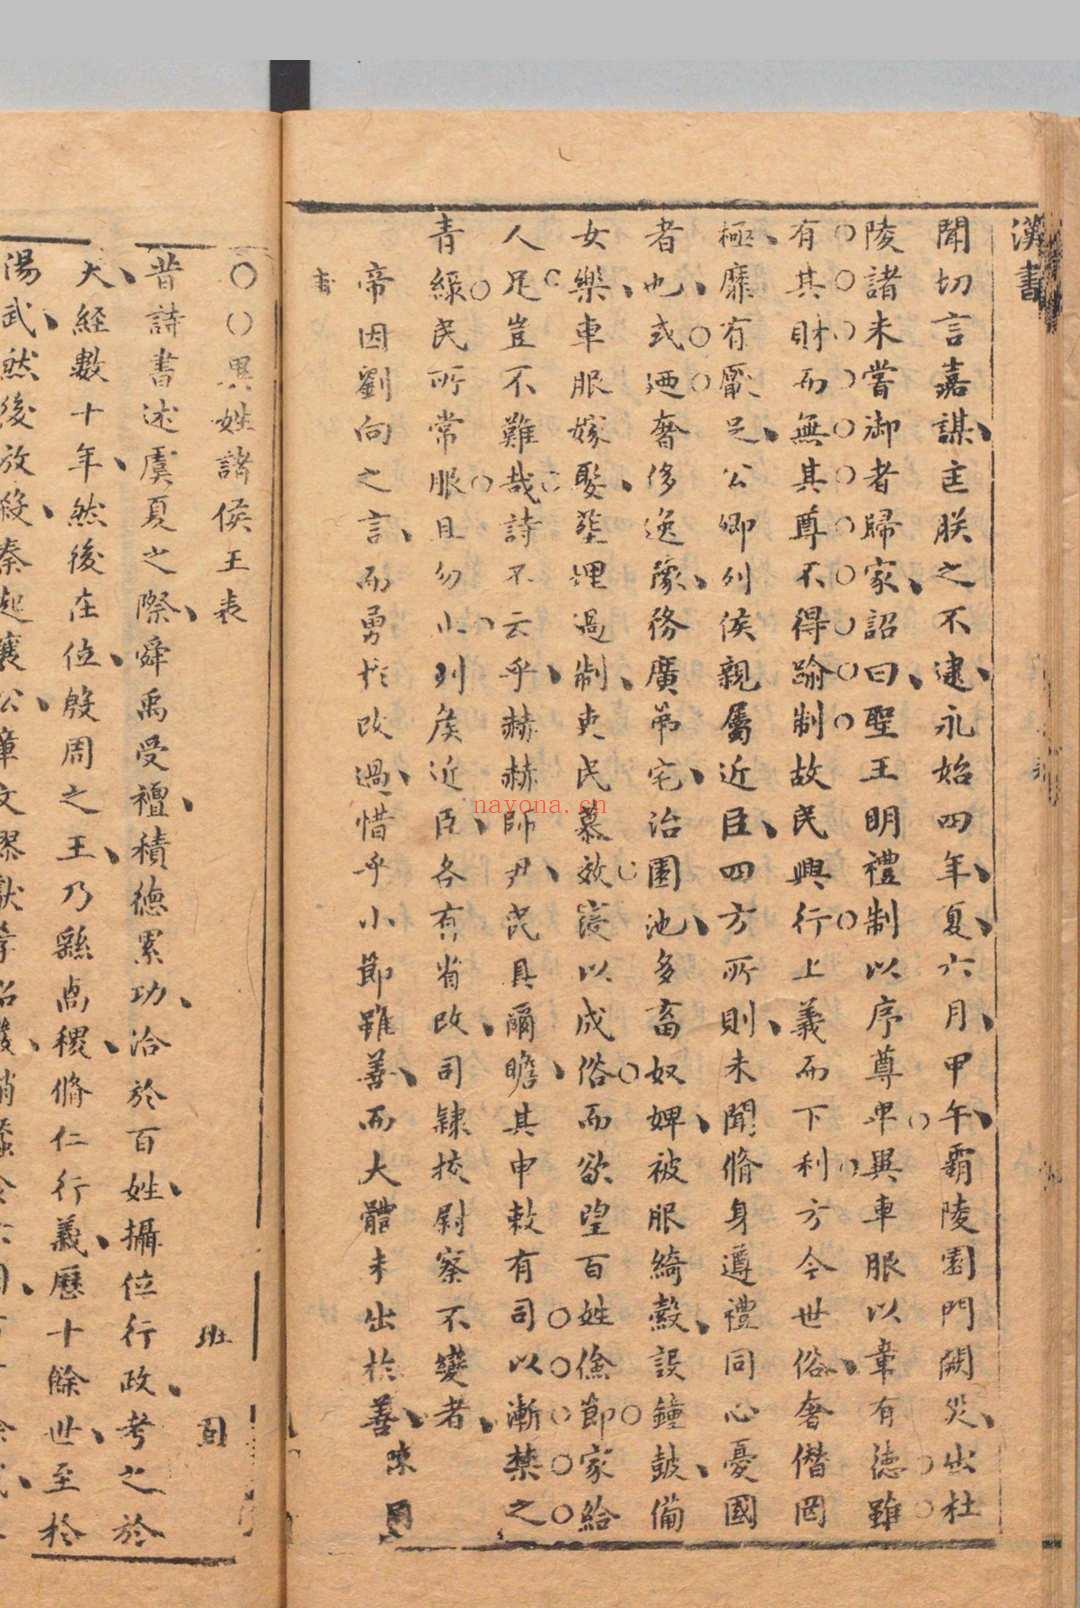 漢書
聞切言嘉謀匡朕之不逮永始四年夏六月甲午霸陵園門闕災出杜
陵諸未嘗御者歸家詔曰聖王明禮制以序尊卑異車服以章有德雖
有其財而無其尊不得踰制故民興行上義而下利方今世俗奢僭罔
極靡有厭足公卿列侯親屬近臣四方所則未聞脩身遵禮同心憂國
者也或迺奢侈逸豫務廣第宅治園池多畜奴婢被服綺縠設鐘鼓備
女樂車服嫁娶塟埋過制吏民慕效寖以成俗而欲望百姓儉節家給
人足豈不難哉詩不云乎赫赫師尹民具爾瞻其申敕有司以漸禁之
青綠民所常服且勿止列侯近臣各有省改司隸挍尉察不變者
帝因劉向之言而勇於改過惜乎小節雖善而大體未出於善
異姓諸侯王表 班固
昔詩書述虞夏之際舜禹受禪積德累功洽於百姓攝位行政考之於
天經數十年然後在位殷周之王乃繇禼稷脩仁行義歷十餘世至於
湯武然後放殺秦起襄公章文繆獻孝昭
nayona.cn